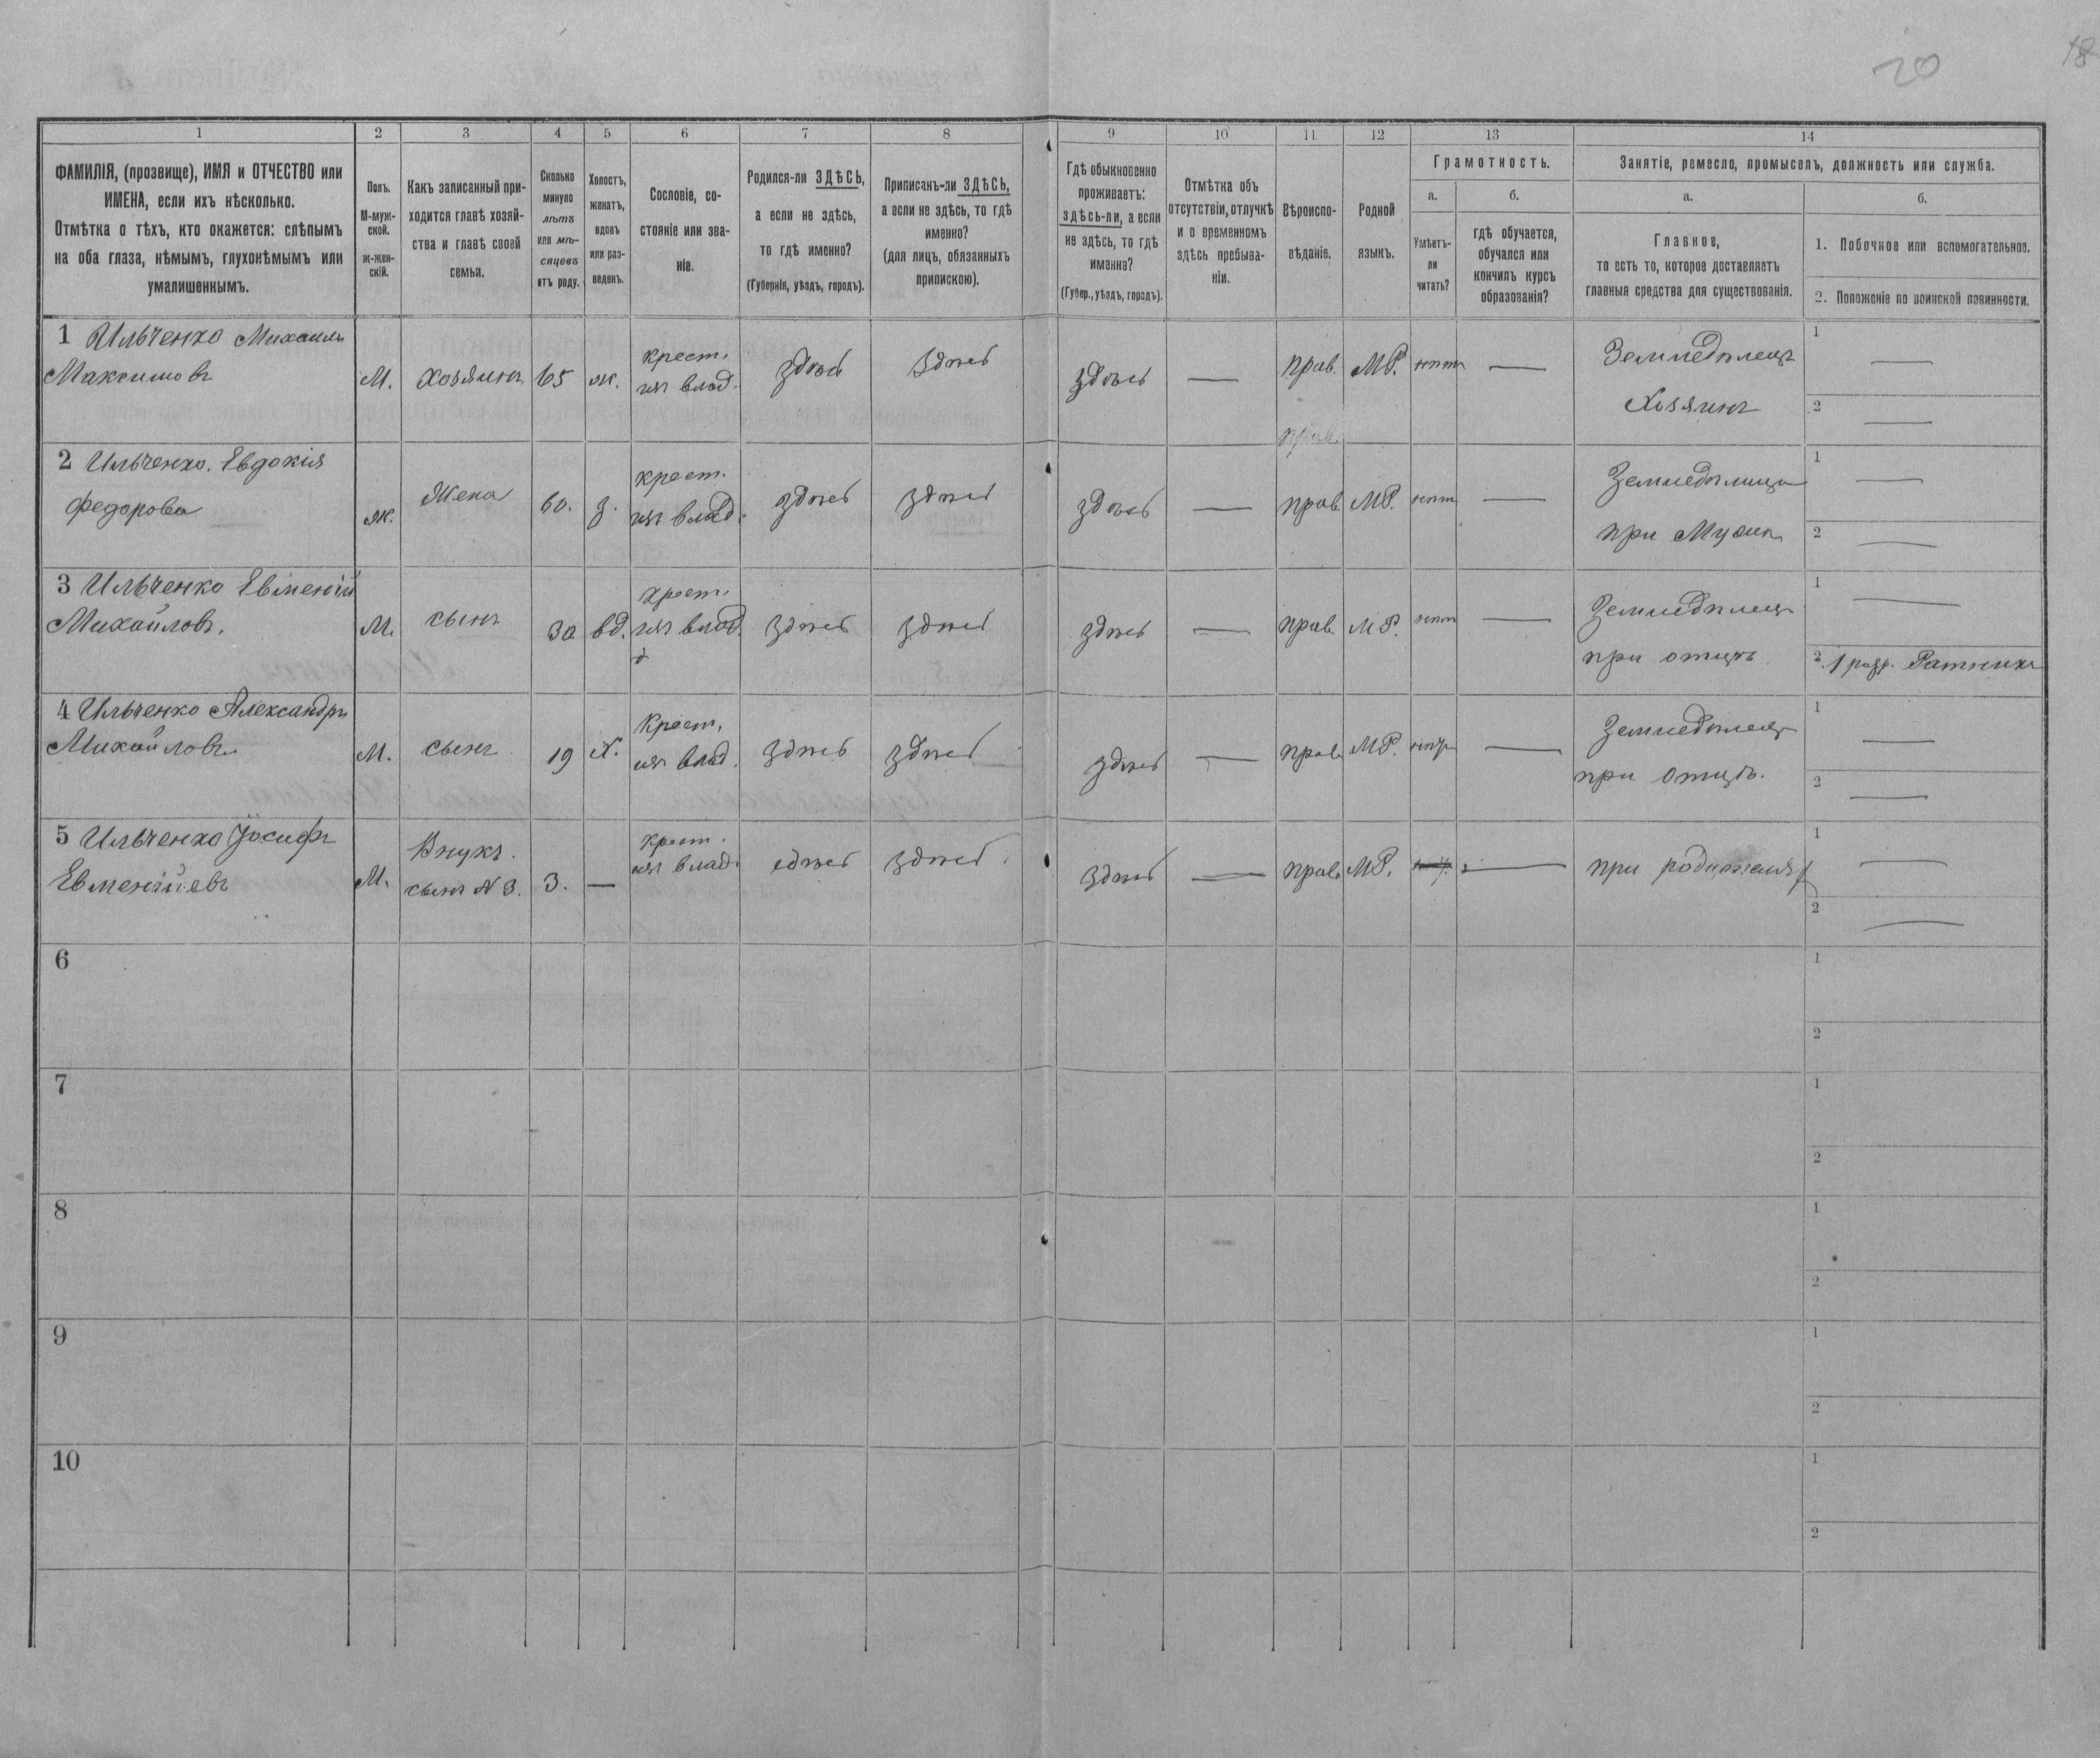 20
18
1 2 3 4 5 6 7 8 9 10 11 12 13 14
ФАМИЛІЯ, (прозвище), ИМЯ и ОТЧЕСТВО или
ИМЕНА, если ихъ нѣсколько.
Отмѣтка о тѣхъ, кто окажется: слѣпымъ
на оба глаза, нѣмымъ, глухонѣмымъ или
умалишеннымъ.
Полъ.
М-муж-
ской.
Ж-жен-
скій.
Какъ записанный при-
ходится главѣ хозяй-
ства и главѣ своей
семьи.
Сколько
минуло
лѣтъ
или мѣ-
сяцевъ
отъ роду.
Холостъ,
женатъ,
вдовъ
или раз-
веденъ.
Сословіе, со-
стояніе или зва-
ніе.
Родился-ли ЗДѢСЬ,
а если не здѣсь,
то гдѣ именно?
(Губернія, уѣздъ, городъ).
Приписанъ-ли ЗДѢСЬ,
а если не здѣсь, то гдѣ
именно?
(для лицъ, обязанныхъ
припискою).
Гдѣ обыкновенно
проживаетъ:
здѣсь-ли, а если
не здѣсь, то гдѣ
именно?
(Губер., уѣздъ, городъ).
Отмѣтка объ
отсутствіи, отлучкѣ
и о временномъ
здѣсь пребыва-
ніи.
Вѣроиспо-
вѣданіе.
Родной
языкъ.
Грамотность.
а.
Умѣетъ-
ли
читать?
б.
гдѣ обучается,
обучался или
кончилъ курсъ
образованія?
Занятіе, ремесло, промыселъ, должность или служба.
а.
Главное,
то есть то, которое доставляетъ
главныя средства для существованія.
б.
1. Побочное или вспомогательное.
2. Положеніе по воинской повинности.
1 Ильченко Михаилъ
Максимовъ
М.
Хозяинъ
65
ж.
крест.
изъ влад.
здѣсь
здѣсь
здѣсь
—
прав.
МР.
нѣтъ
—
Земледѣлецъ
Хозяинъ
1 —
2 —
прав.
2 Ильченко. Евдокія
Федорова
ж.
Жена
60.
з.
крест.
изъ влад.
здѣсь
здѣсь
здѣсь
—
прав.
МР.
нѣтъ
—
Земледѣлица
при Мужѣ
1 —
2 —
3 Ильченко Евменій
Михайловъ.
М.
сынъ
30
вд.
крест.
изъ влад.
здѣсь
здѣсь
здѣсь
—
прав.
МР.
нѣтъ
—
Земледѣлецъ
при отцѣ
1 —
2 1 разр. Ратникъ
4 Ильченко Александръ
Михайловъ
М.
сынъ
19
х.
Крест.
изъ влад.
здѣсь
здѣсь
здѣсь
—
прав.
МР.
нѣтъ
—
Земледѣлецъ
при отцѣ.
1 —
2 —
5 Ильченко Іосифъ
Евменіевъ
М.
Внукъ.
сынъ N 3.
3.
—
крест.
изъ влад.
здѣсь
здѣсь
здѣсь
—
прав.
МР.
—
при родителях
1 —
2 —
6
1
2
7
1
2
8
1
2
9
1
2
10
1
2